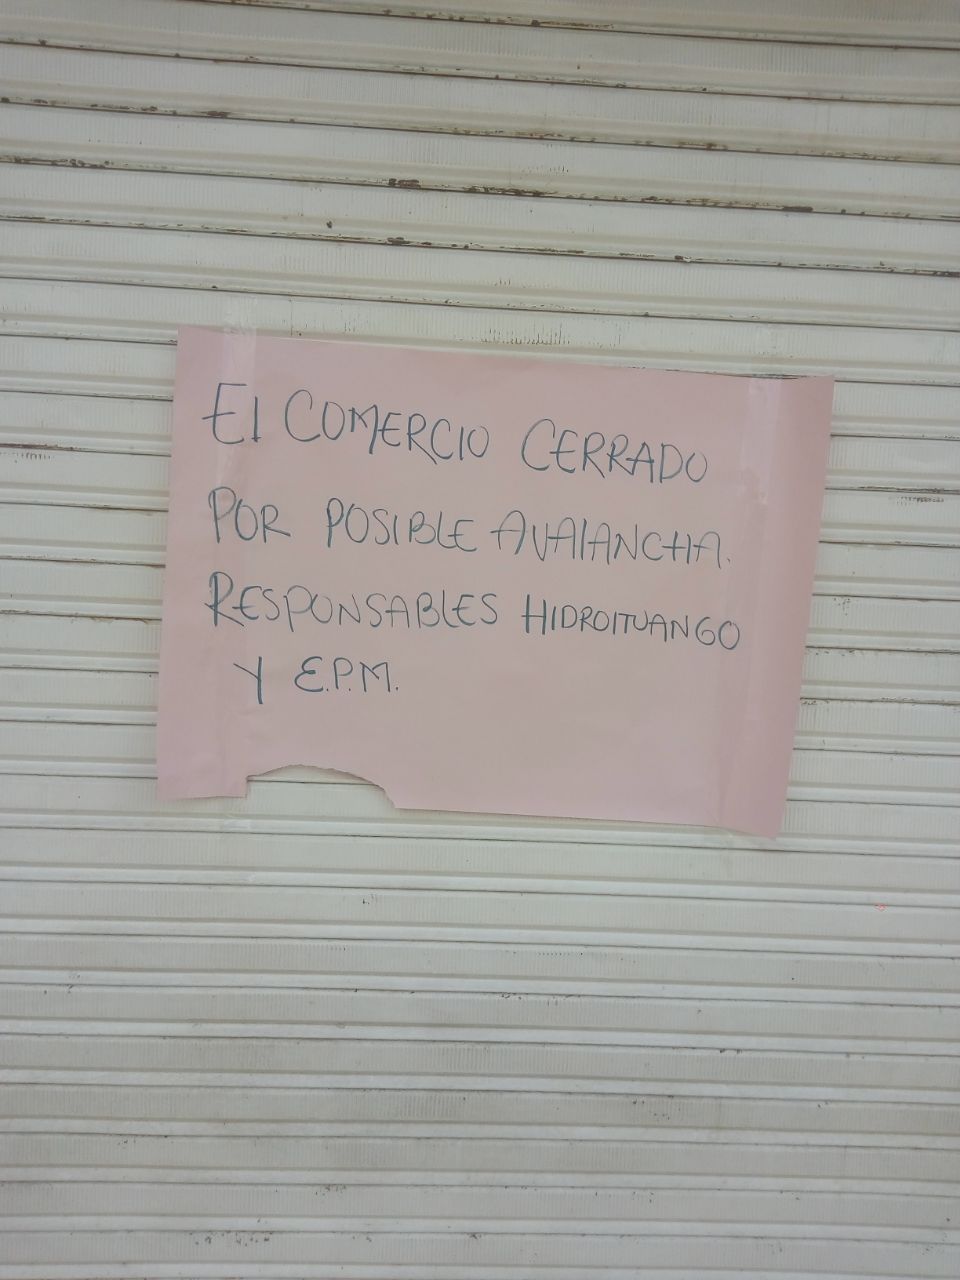 El COMERCIO CERRADO
POR POSIBLE AVAlANCHA.
RESPONSABLES HIDROITUANGO
Y E.P.M.